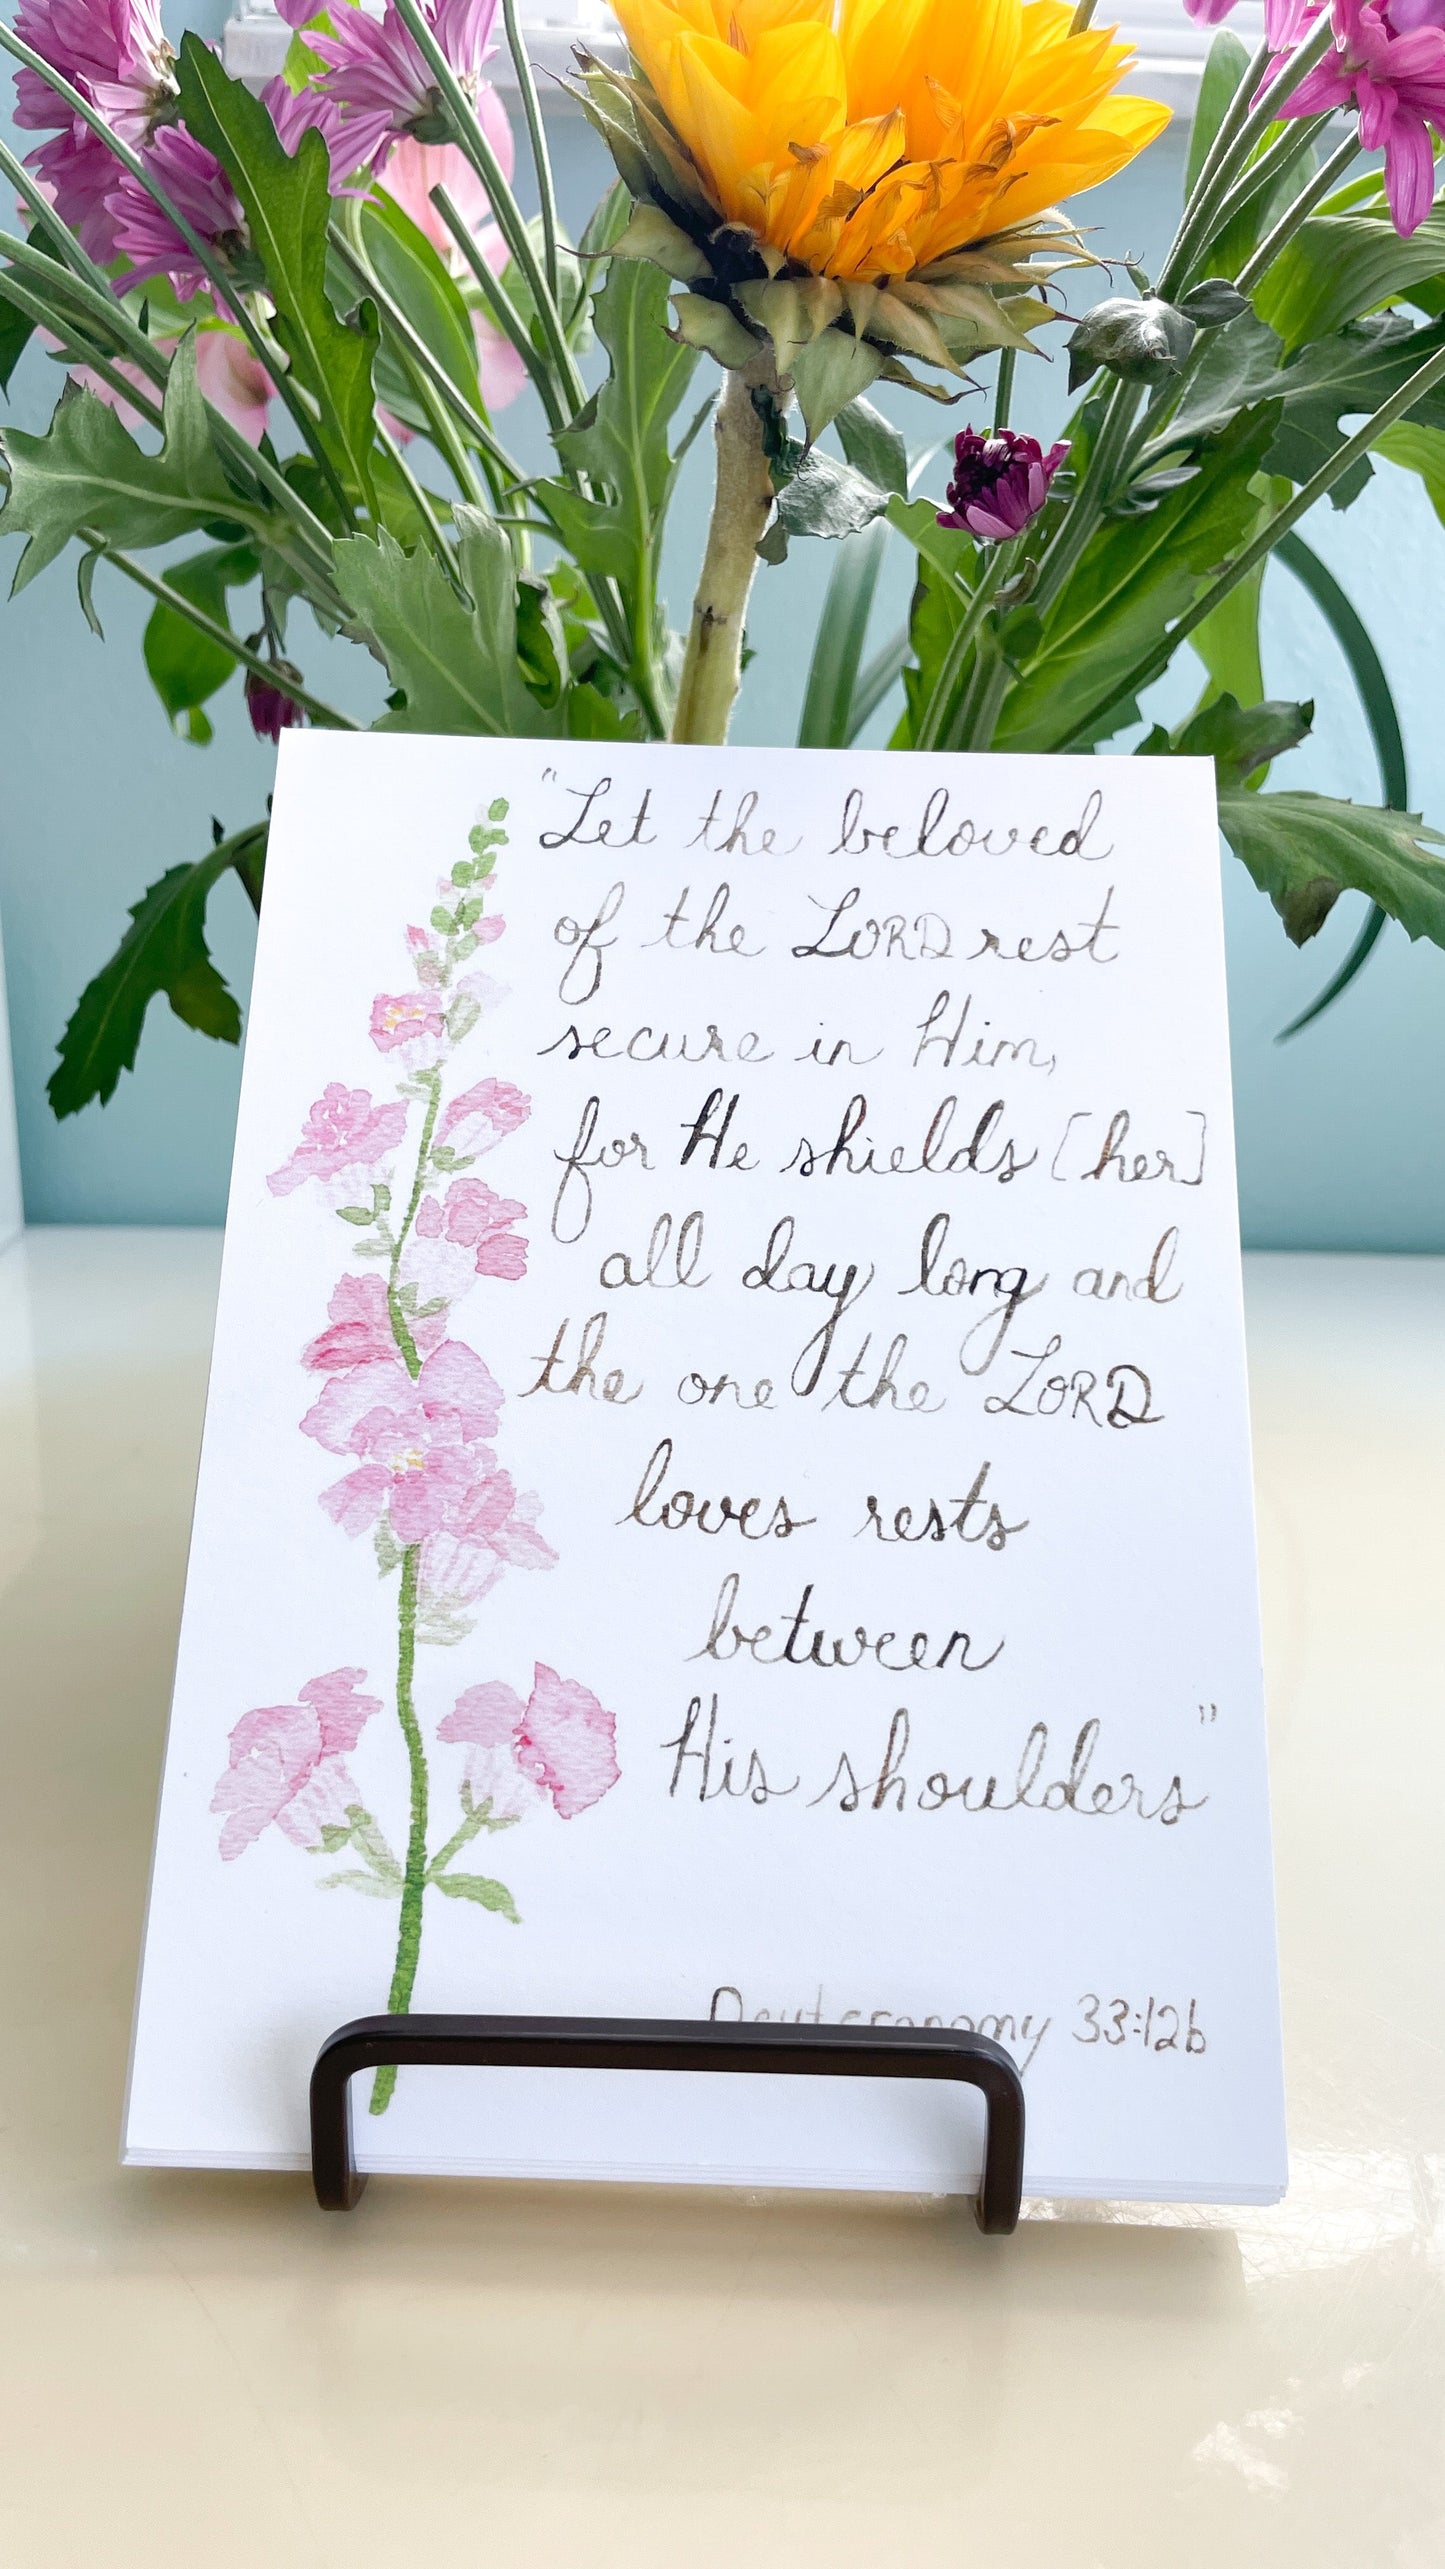 "Let the beloved
of the LORD rest
secure in Him,
for He shields [her]
all day long and
the one the LORD
loves rests
between
His shoulders"
Deuteronomy 33:12b